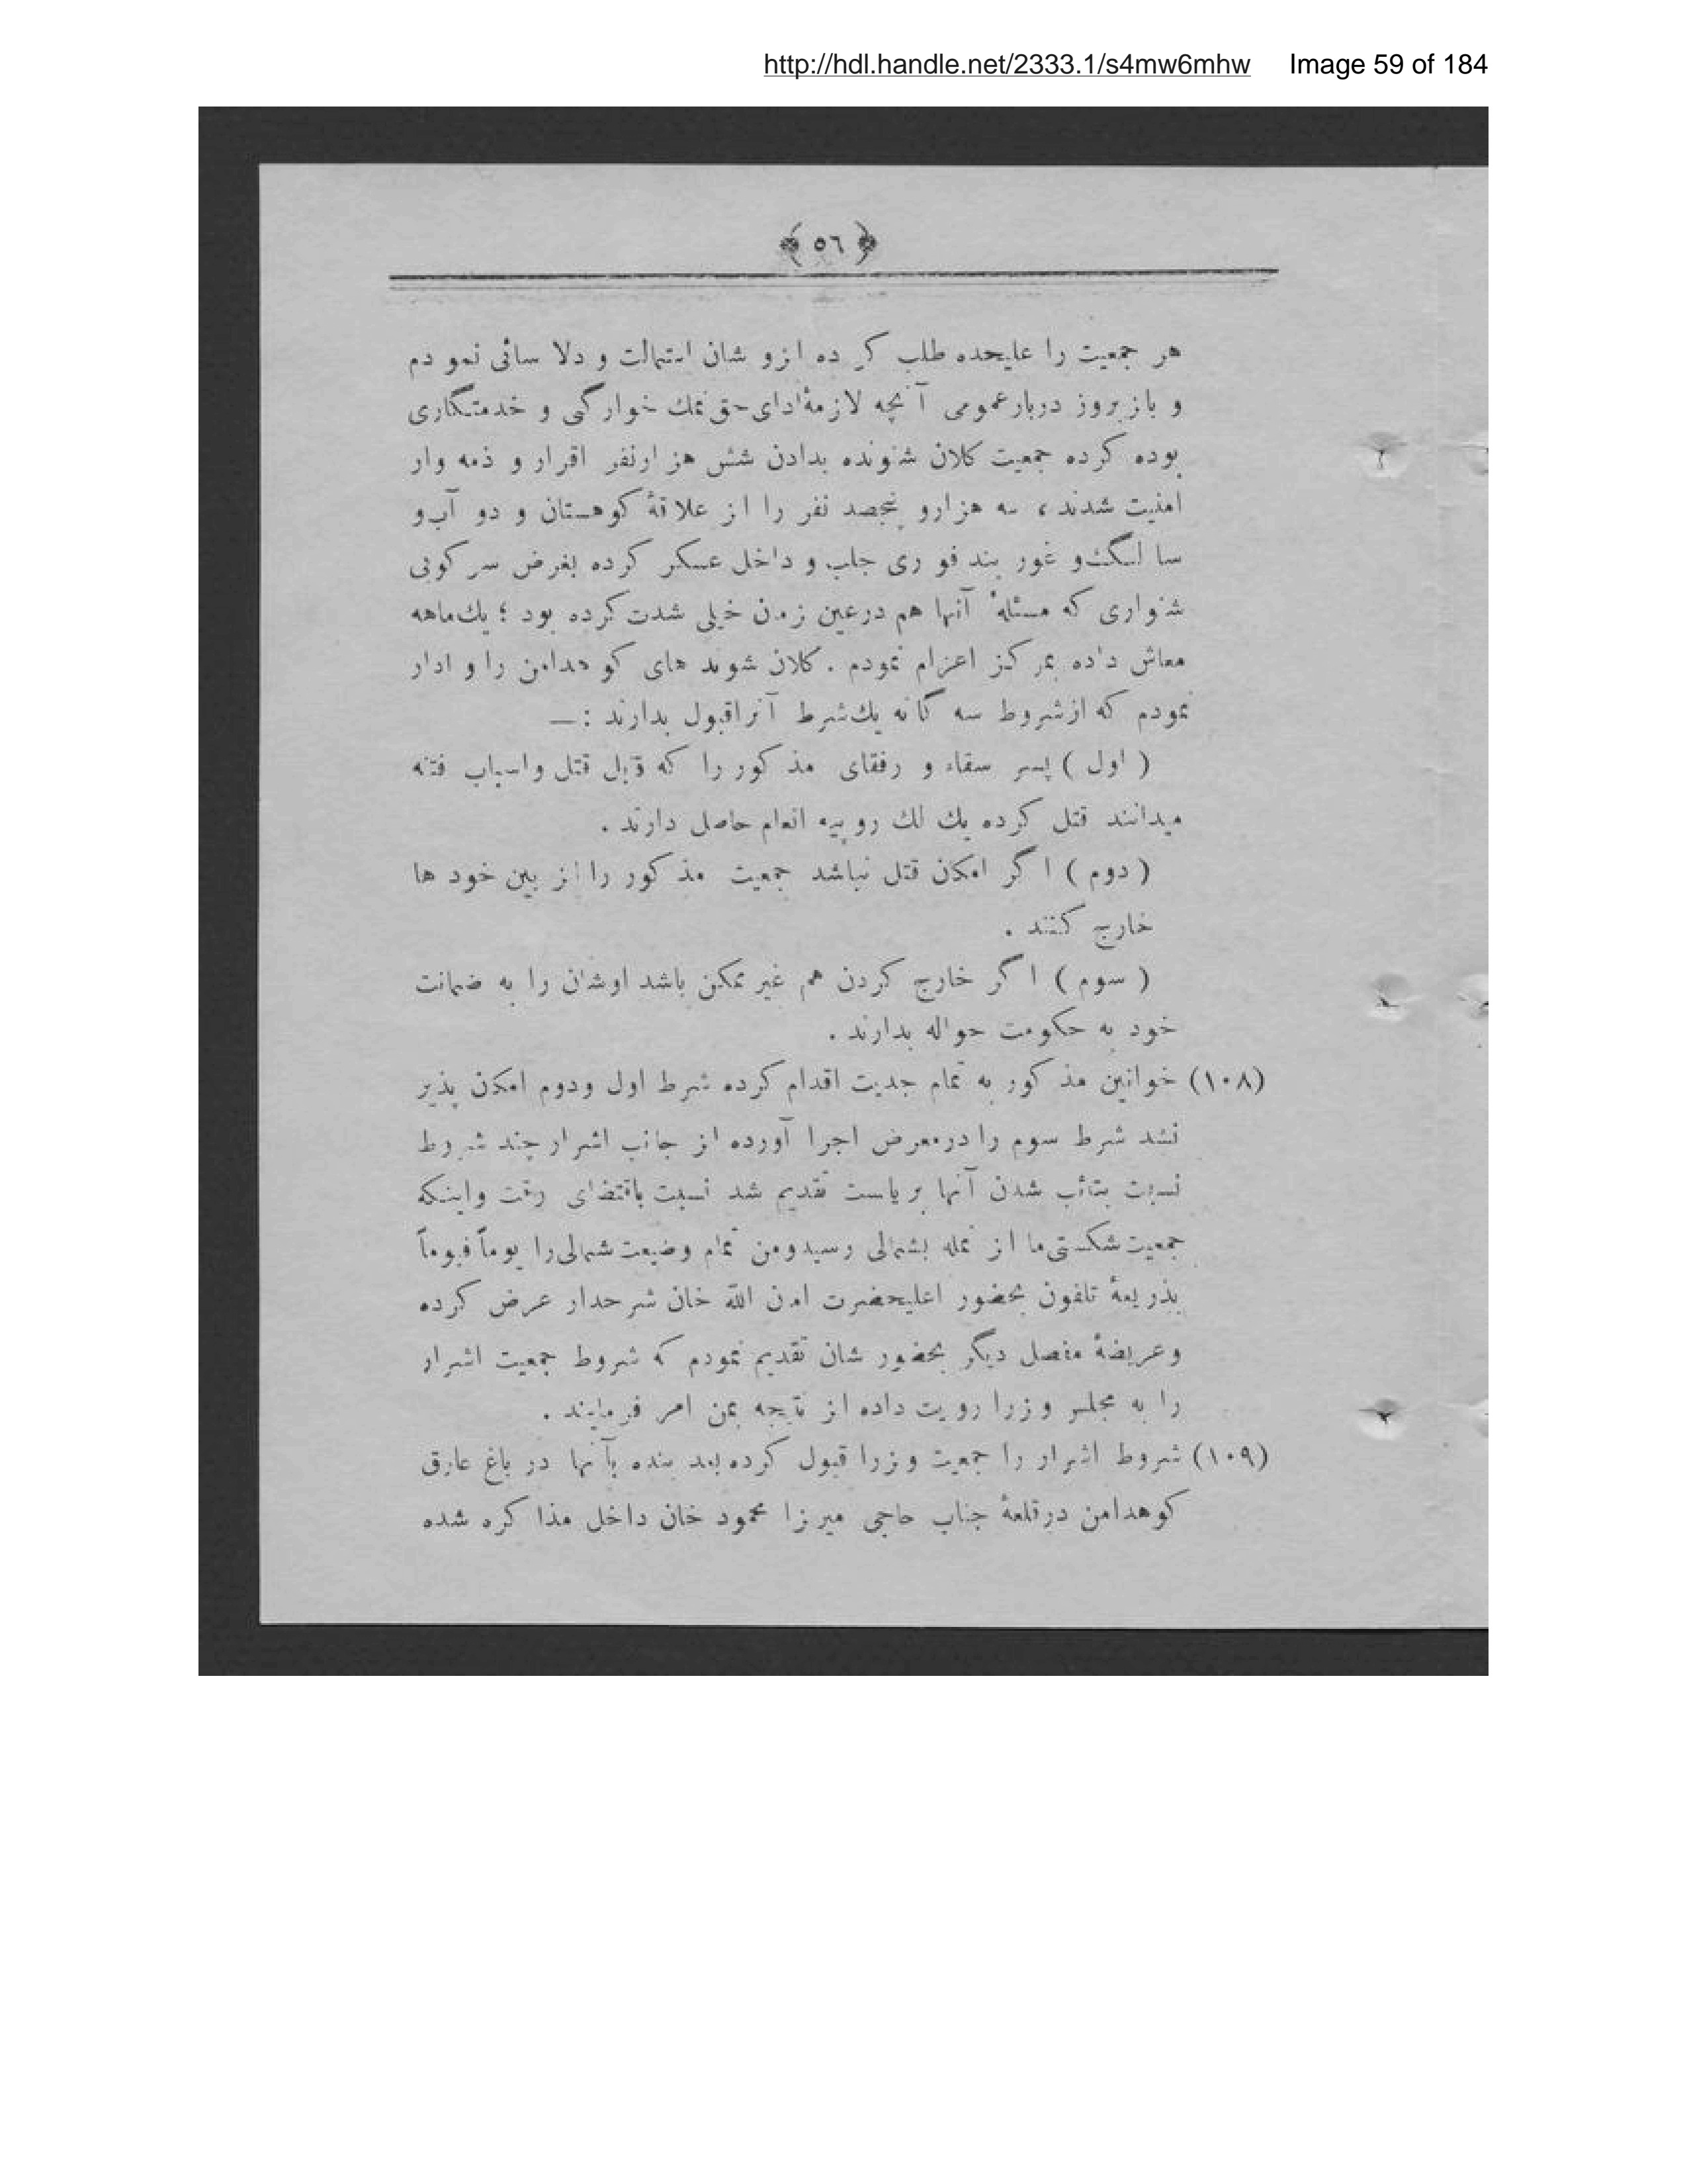 http://hdl.handle.net/2333.1/s4mw6mhw Image 59 of 184
﴿ ٥٦ ﴾
هر جمعیت را علیحده طلب کر ده ازو شان استمالت و دلا سائی نمو دم
و باز بروز دربار عمومی آ نچه لازمهٔ ادای حق نمك خوارگی و خدمتگاری
بوده کرده جمعیت کلان شنونده بدادن شش هز ارنفر اقرار و ذمه وار
امنیت شدند ، سه هزارو پنجصد نفر را از علاقهٔ کوهستان و دو آب و
سا لنگ و غور بند فو ری جلب و داخل عسکر کرده بغرض سر کوبی
شنواری که مسئلهٔ آنها هم درعین زمان خیلی شدت کرده بود ؛ یك ماهه
معاش داده بمر کز اعزام نمودم . کلان شوند های کو هدامن را و ادار
نمودم که ازشروط سه گانه یك شرط آنراقبول بدارند : —
( اول ) پسر سقاء و رفقای مذ کور را که قابل قتل واسباب فتنه
میدانند قتل کرده یك لك روپیه انعام حاصل دارند .
( دوم ) ا گر امکان قتل نباشد جمعیت مذ کور را از بین خود ها
خارج کنند .
( سوم ) ا گر خارج کردن هم غیر ممکن باشد اوشان را به ضمانت
خود به حکومت حواله بدارند .
(١٠٨) خوانین مذ کور به تمام جدیت اقدام کرده شرط اول ودوم امکان پذیر
نشد شرط سوم را درمعرض اجرا آورده از جانب اشرار چند شروط
نسبت بتأب شدن آنها بر یاست تقدیم شد نسبت باقتضای وقت واینکه
جمعیت شکستی ما از تمله بشمالی رسید ومن تمام وضیعت شمالی را یوماً فیوماً
بذریعهٔ تلفون بحضور اعلیحضرت امان الله خان شرحدار عرض کرده
وعریضهٔ مفصل دیگر بحضور شان تقدیم نمودم که شروط جمعیت اشرار
را به مجلس وزرا رویت داده از نتیجه بمن امر فرمایند .
(١٠٩) شروط اشرار را جمعیت وزرا قبول کرده بعد بنده بآ نها در باغ عارق
کوهدامن درقلعهٔ جناب حاجی میرزا محمود خان داخل مذا کره شده